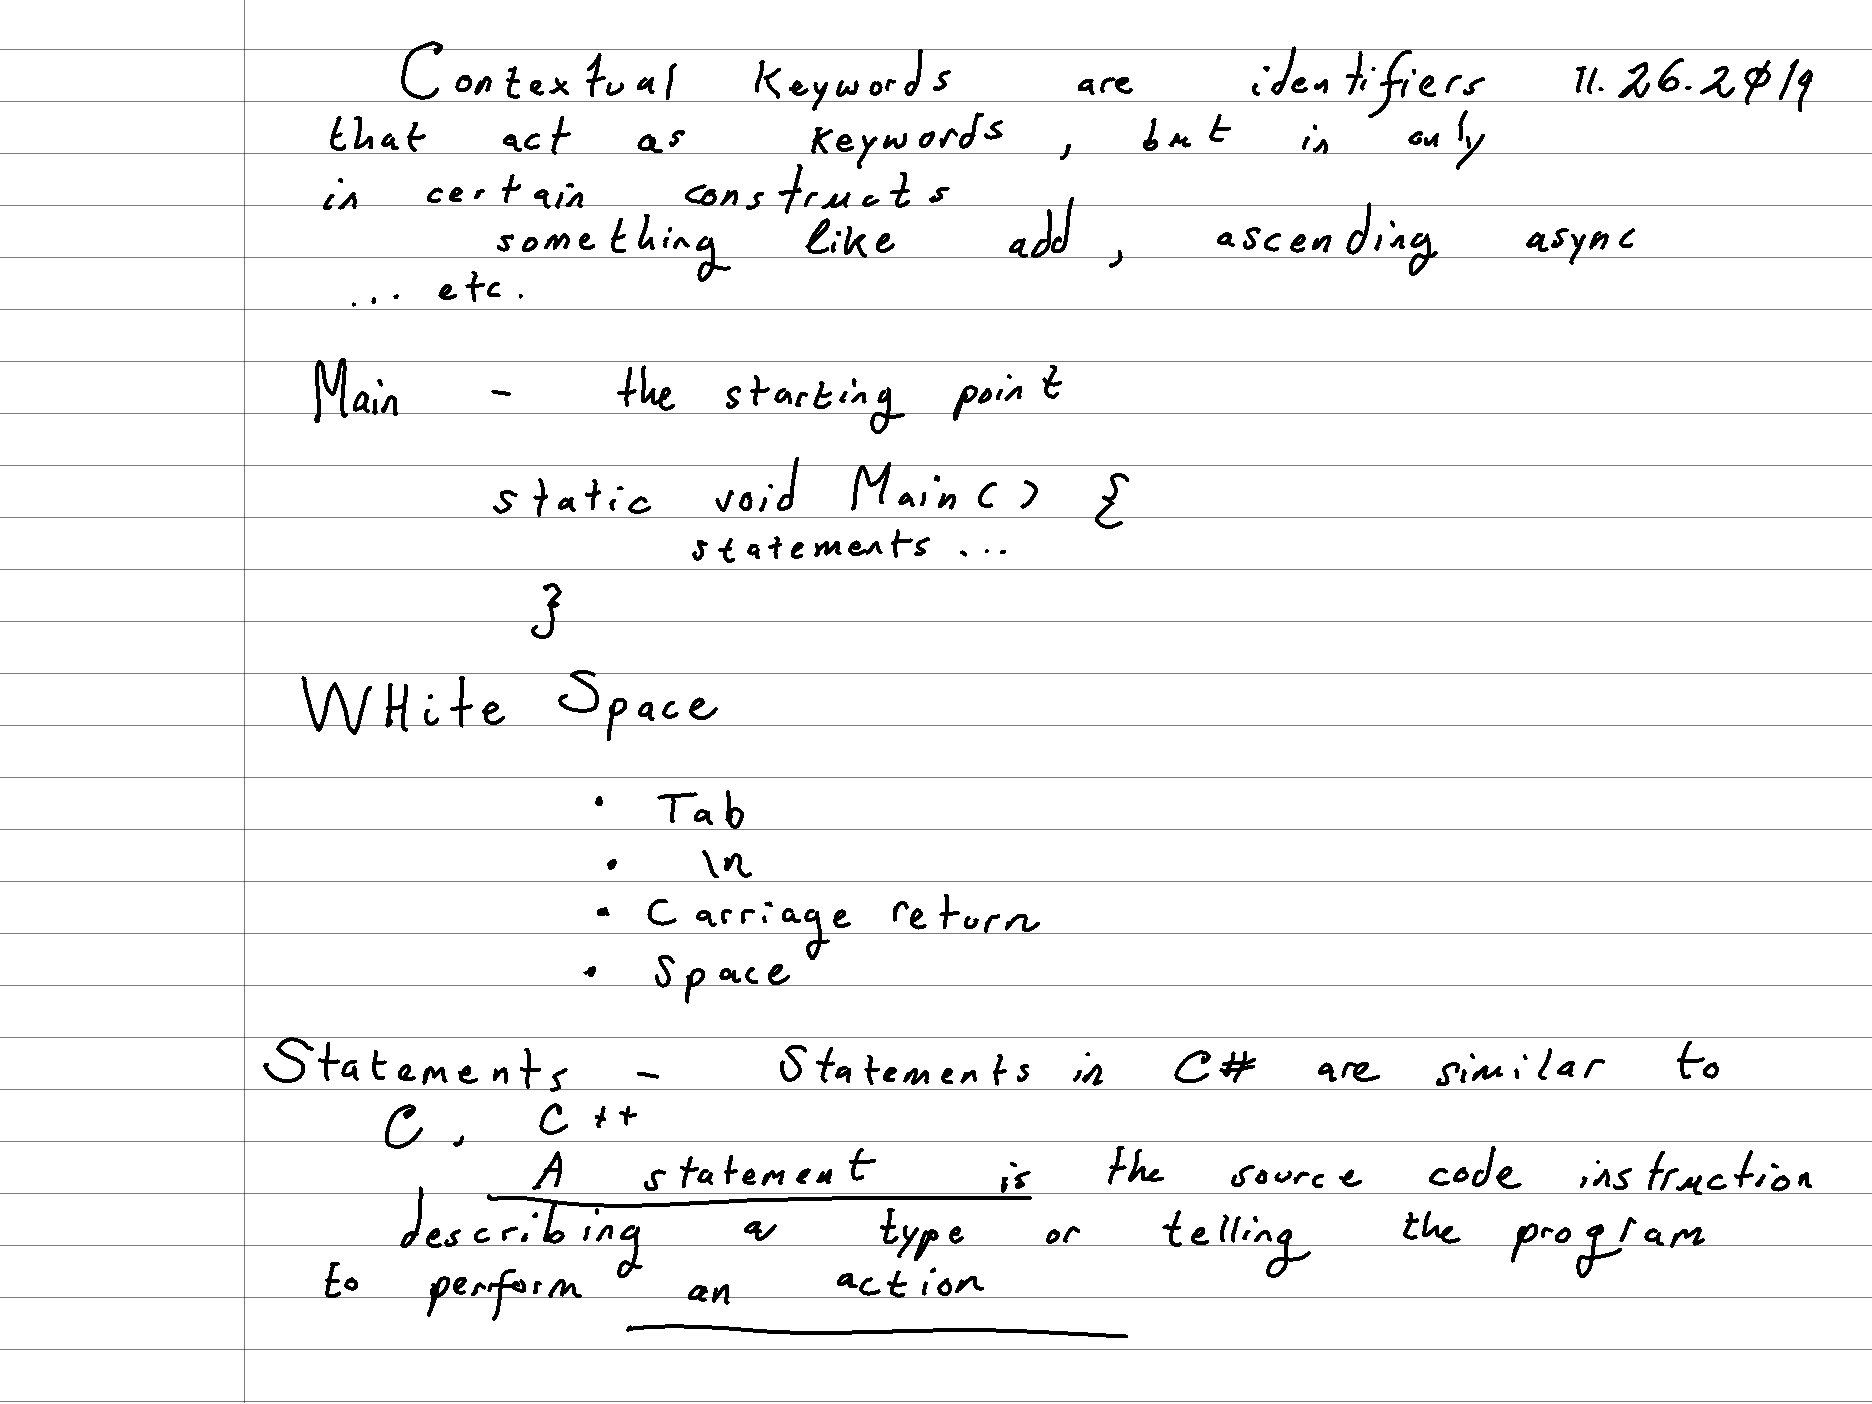 Contextual Keywords are identifiers 11.26.2019
that act as Keywords, but in only
in certain constructs
something like add, ascending async
... etc.
Main - the starting point
static void Main() {
statements...
}
WHite Space
• Tab
• \n
• Carriage return
• Space
Statements - Statements in C# are similar to
C, C++
A statement is the source code instruction
describing a type or telling the program
to perform an action